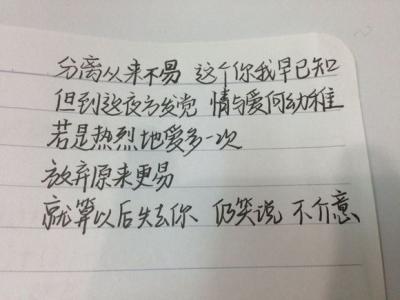 分离从来不易 这个你我早已知
但到这夜方发觉 情与爱何幼稚
若是热烈地爱多一次
放弃原来更易
就算以后失去你 仍笑说 不介意